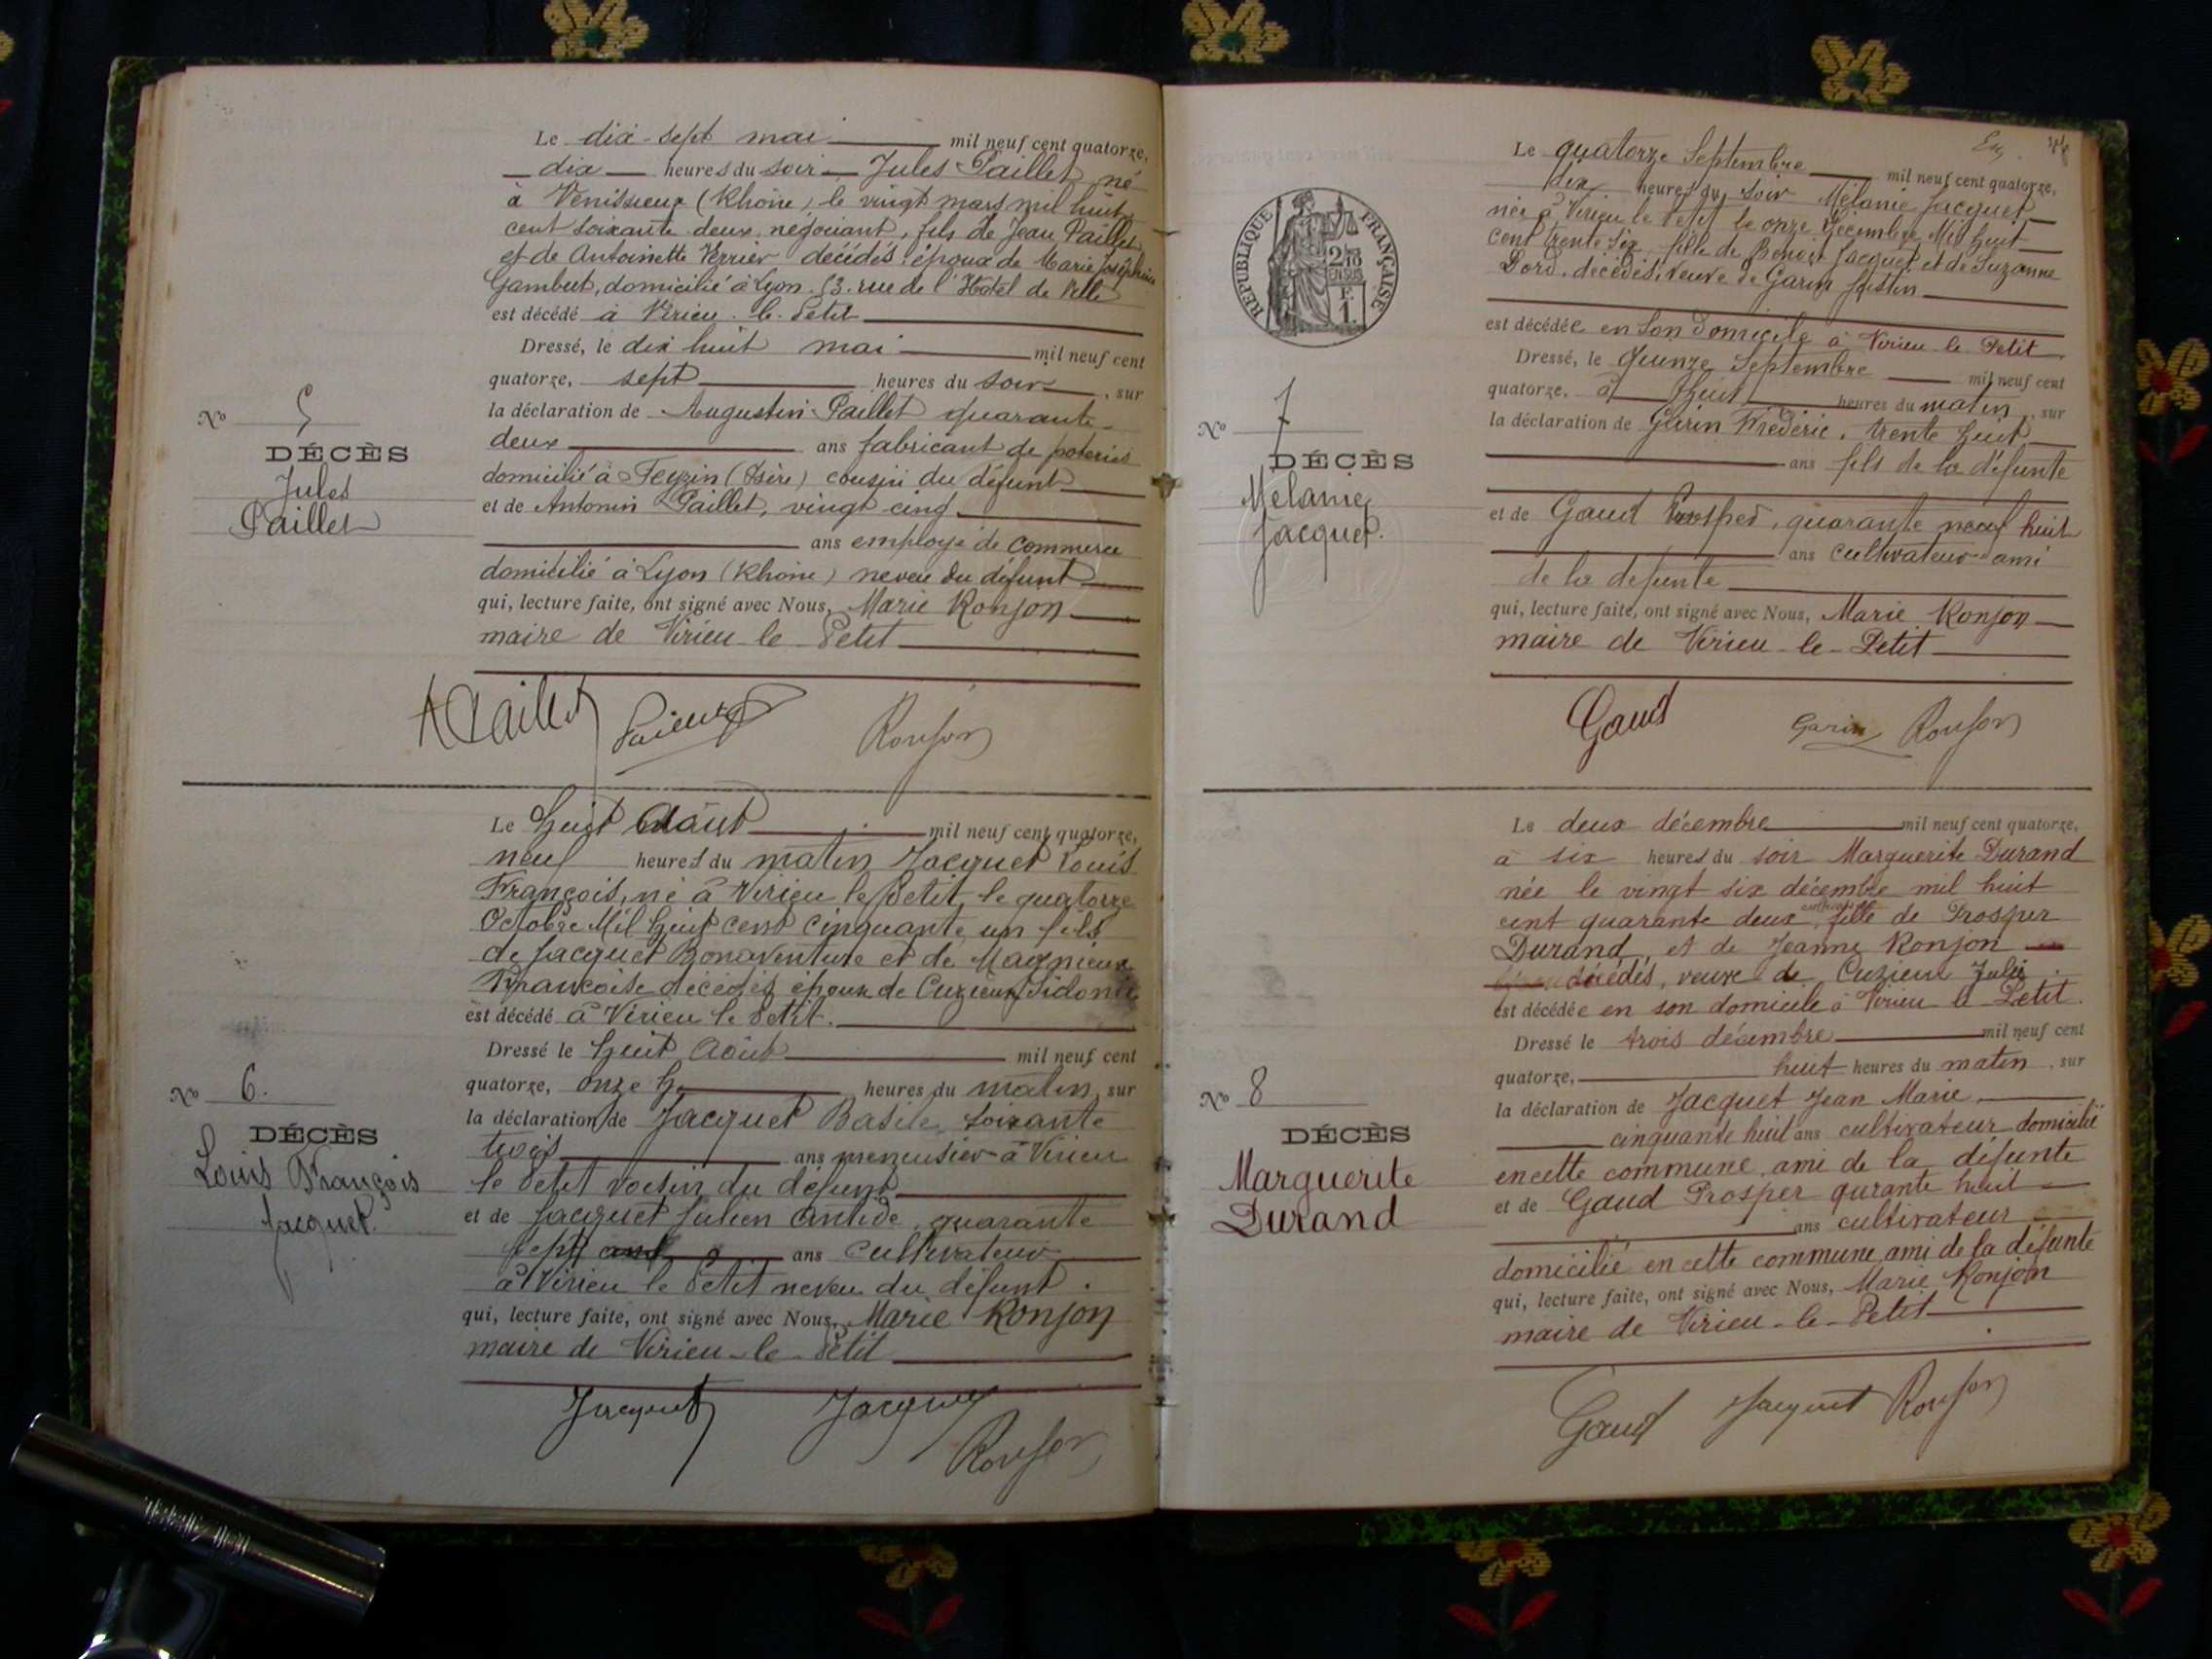 Le dix-sept mai mil neuf cent quatorze,
dix heures du soir Jules Paillet né
à Venissieux (Rhône) le vingt mars mil huit
cent soixante deux, négociant, fils de Jean Paillet
et de Antoinette Verrier décédés, époux de Marie Joséphine
Gambut, domicilié à Lyon 13 rue de l'Hotel de Ville
est décédé à Virieu-le-Petit
Dressé, le dix huit mai mil neuf cent
quatorze, sept heures du soir, sur
la déclaration de Augustin Paillet quarante
deux ans fabricant de poteries
domicilié à Feyzin (Isère) cousin du défunt
et de Antonin Paillet, vingt cinq
ans employé de commerce
domicilié à Lyon (Rhône) neveu du défunt
qui, lecture faite, ont signé avec Nous, Marie Ronjon
maire de Virieu-le-Petit
No 5
DÉCÈS
Jules
Paillet
A Paillet Paillet Ronjon
Le huit Août mil neuf cent quatorze,
neuf heures du matin Jacquet Louis
François, né à Virieu le Petit, le quatorze
Octobre Mil huit cent cinquante un fils
de Jacquet Bonaventure et de Magnieux
Françoise décédés époux de Cuzieux Sidonie
est décédé à Virieu le Petit.
Dressé le huit Août mil neuf cent
quatorze, onze h. heures du matin, sur
la déclaration de Jacquet Basile, soixante
trois ans menuisier à Virieu
le Petit voisin du défunt
et de Jacquet Julien Antide, quarante
sept ans cultivateur
à Virieu le Petit neveu du défunt.
qui, lecture faite, ont signé avec Nous, Marie Ronjon
maire de Virieu-le-Petit
No 6.
DÉCÈS
Louis François
Jacquet.
Jacquet Jacquet
Ronjon
REPUBLIQUE FRANÇAISE
2/10
EN SUS
F.
1.
Le quatorze Septembre mil neuf cent quatorze,
dix heures du soir Mélanie Jacquet
née à Virieu le Petit le onze Décembre Mil huit
cent trente six fille de Benoît Jacquet et de Suzanne
Dord, décédés, veuve de Garin Justin
est décédée en son domicile à Virieu le Petit.
Dressé, le Quinze Septembre mil neuf cent
quatorze, à huit heures du matin, sur
la déclaration de Garin Frédéric, trente huit
ans fils de la défunte
et de Gaud Prosper, quarante neuf huit
ans cultivateur ami
de la défunte
qui, lecture faite, ont signé avec Nous, Marie Ronjon
maire de Virieu-le-Petit
No 7
DÉCÈS
Mélanie
Jacquet.
Gaud Garin Ronjon
Le deux décembre mil neuf cent quatorze,
à six heures du soir Marguerite Durand
née le vingt six décembre mil huit
cent quarante deux, fille de Prosper
Durand et de Jeanne Ronjon
décédés, veuve de Cuzieux Julie
est décédée en son domicile à Virieu le Petit.
Dressé le trois décembre mil neuf cent
quatorze, huit heures du matin, sur
la déclaration de Jacquet Jean Marie
cinquante huit ans cultivateur domicilié
en cette commune ami de la défunte
et de Gaud Prosper qurante huit
ans cultivateur
domicilié en cette commune ami de la défunte
qui, lecture faite, ont signé avec Nous, Marie Ronjon
maire de Virieu-le-Petit
No 8
DÉCÈS
Marguerite
Durand
Gaud Jacquet Ronjon